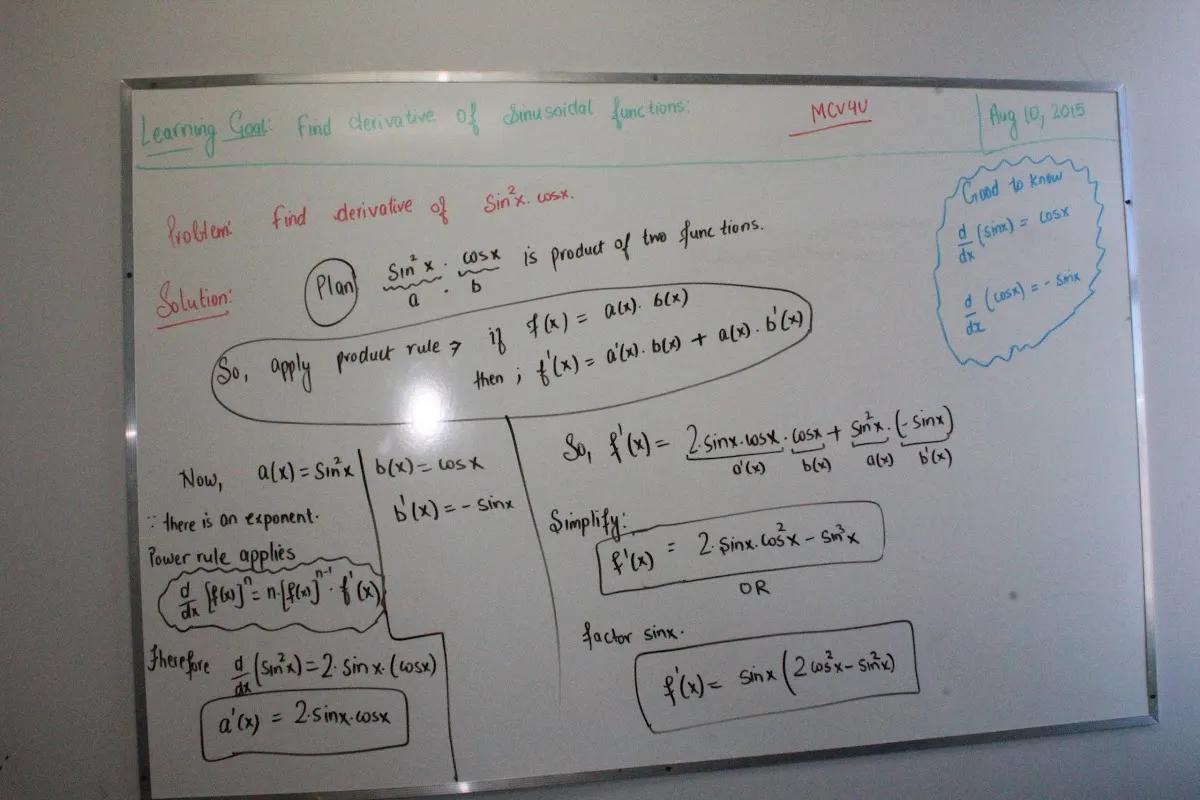 Learning Goal: find derivative of Sinusoidal functions:
MCV4U
Aug 10, 2015
Good to know
d/dx (sinx) = cosx
d/dx (cosx) = - sinx
Problem: find derivative of Sin²x. cosx.
Solution:
Plan
Sin²x . cosx is product of two functions.
a . b
So, apply product rule → if f(x) = a(x). b(x)
then ; f'(x) = a'(x). b(x) + a(x). b'(x)
Now, a(x) = Sin²x
∵ there is an exponent.
Power rule applies
d/dx [f(x)]ⁿ = n.[f(x)]ⁿ⁻¹. f'(x)
Therefore d/dx (sin²x) = 2. sinx. (cosx)
a'(x) = 2.sinx.cosx
b(x) = cosx
b'(x) = - sinx
So, f'(x) = 2.sinx.cosx . cosx + sin²x . (- sinx)
a'(x) b(x) a(x) b'(x)
Simplify:
f'(x) = 2. sinx. cos²x - sin³x
OR
factor sinx.
f'(x) = sinx (2 cos²x - sin²x)